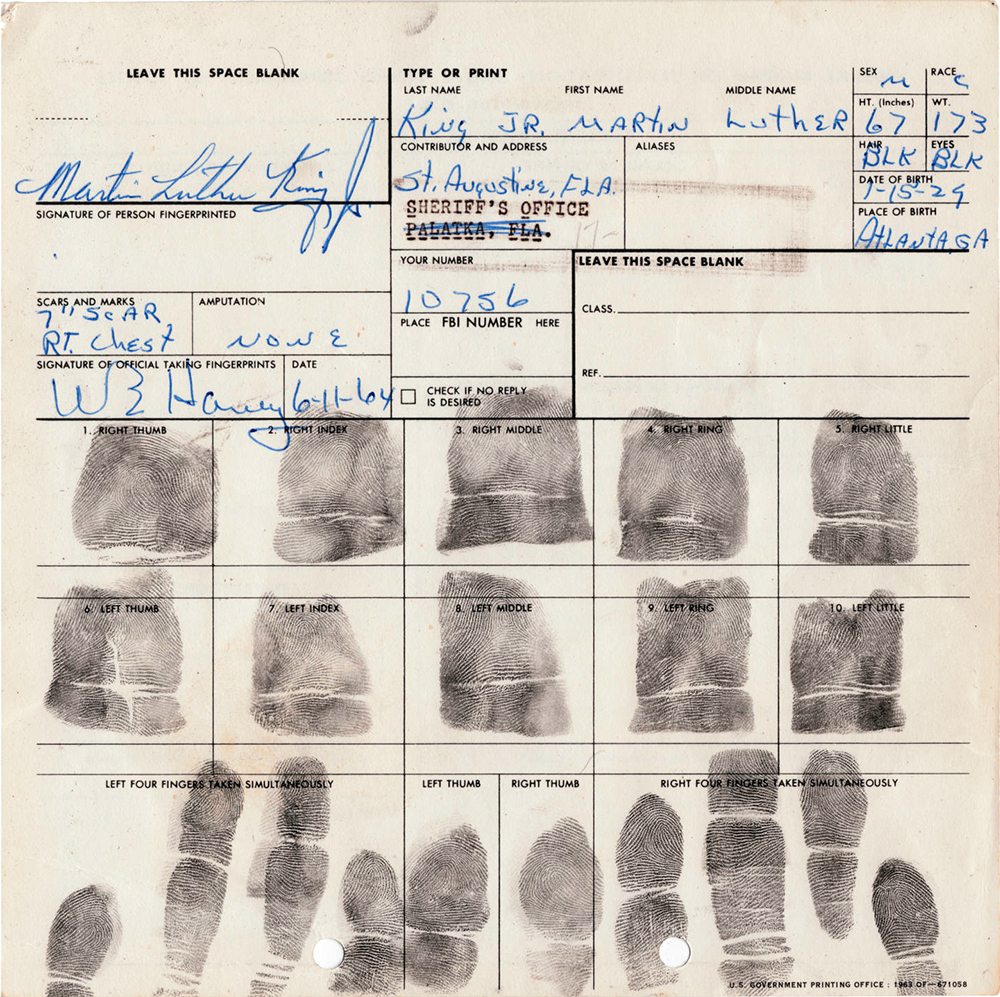 LEAVE THIS SPACE BLANK
TYPE OR PRINT
LAST NAME FIRST NAME MIDDLE NAME
King JR. MARTIN LutHER
SEX M RACE C
HT. (Inches) WT.
67 173
HAIR EYES
BLK BLK
DATE OF BIRTH
1-15-29
PLACE OF BIRTH
AtLANTA, GA
Martin Luther King Jr.
SIGNATURE OF PERSON FINGERPRINTED
CONTRIBUTOR AND ADDRESS
St. Augustine, FLA.
SHERIFF'S OFFICE
PALATKA, FLA.
ALIASES
YOUR NUMBER
10756
LEAVE THIS SPACE BLANK
CLASS.
REF.
SCARS AND MARKS
7" ScAR
RT. Chest
AMPUTATION
NONE
PLACE FBI NUMBER HERE
SIGNATURE OF OFFICIAL TAKING FINGERPRINTS
W E Haney
DATE
6-11-64
CHECK IF NO REPLY
IS DESIRED
1. RIGHT THUMB
2. RIGHT INDEX
3. RIGHT MIDDLE
4. RIGHT RING
5. RIGHT LITTLE
6. LEFT THUMB
7. LEFT INDEX
8. LEFT MIDDLE
9. LEFT RING
10. LEFT LITTLE
LEFT FOUR FINGERS TAKEN SIMULTANEOUSLY
LEFT THUMB
RIGHT THUMB
RIGHT FOUR FINGERS TAKEN SIMULTANEOUSLY
U.S. GOVERNMENT PRINTING OFFICE : 1963 OF—671058